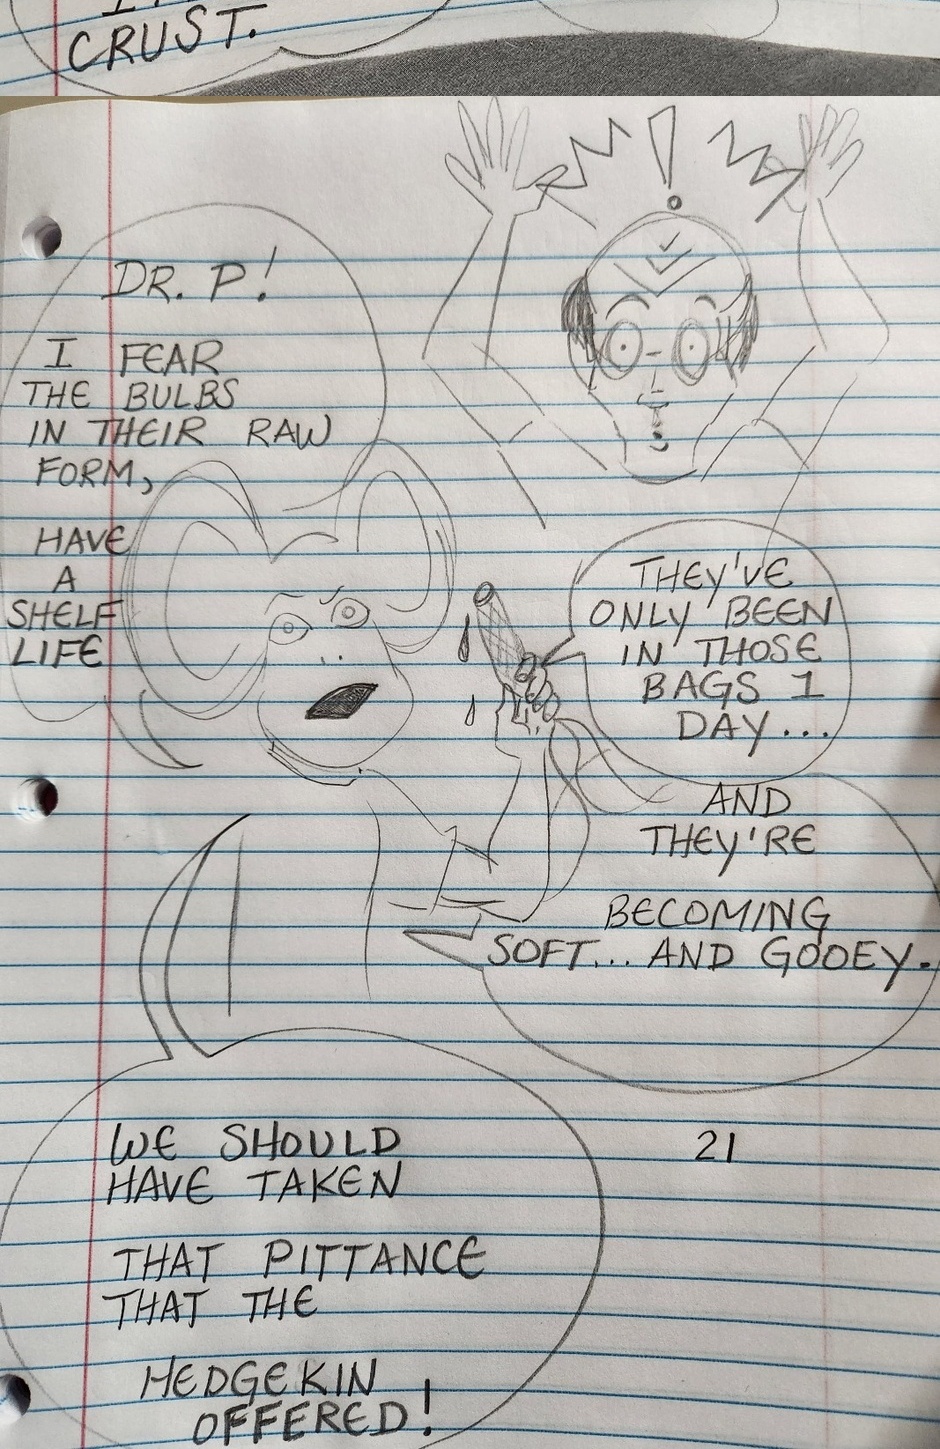 CRUST.
DR. P!
I FEAR
THE BULBS
IN THEIR RAW
FORM,
HAVE
A
SHELF
LIFE
!
THEY'VE
ONLY BEEN
IN THOSE
BAGS 1
DAY...
AND
THEY'RE
BECOMING
SOFT... AND GOOEY.
WE SHOULD
HAVE TAKEN
THAT PITTANCE
THAT THE
HEDGEKIN
OFFERED!
21